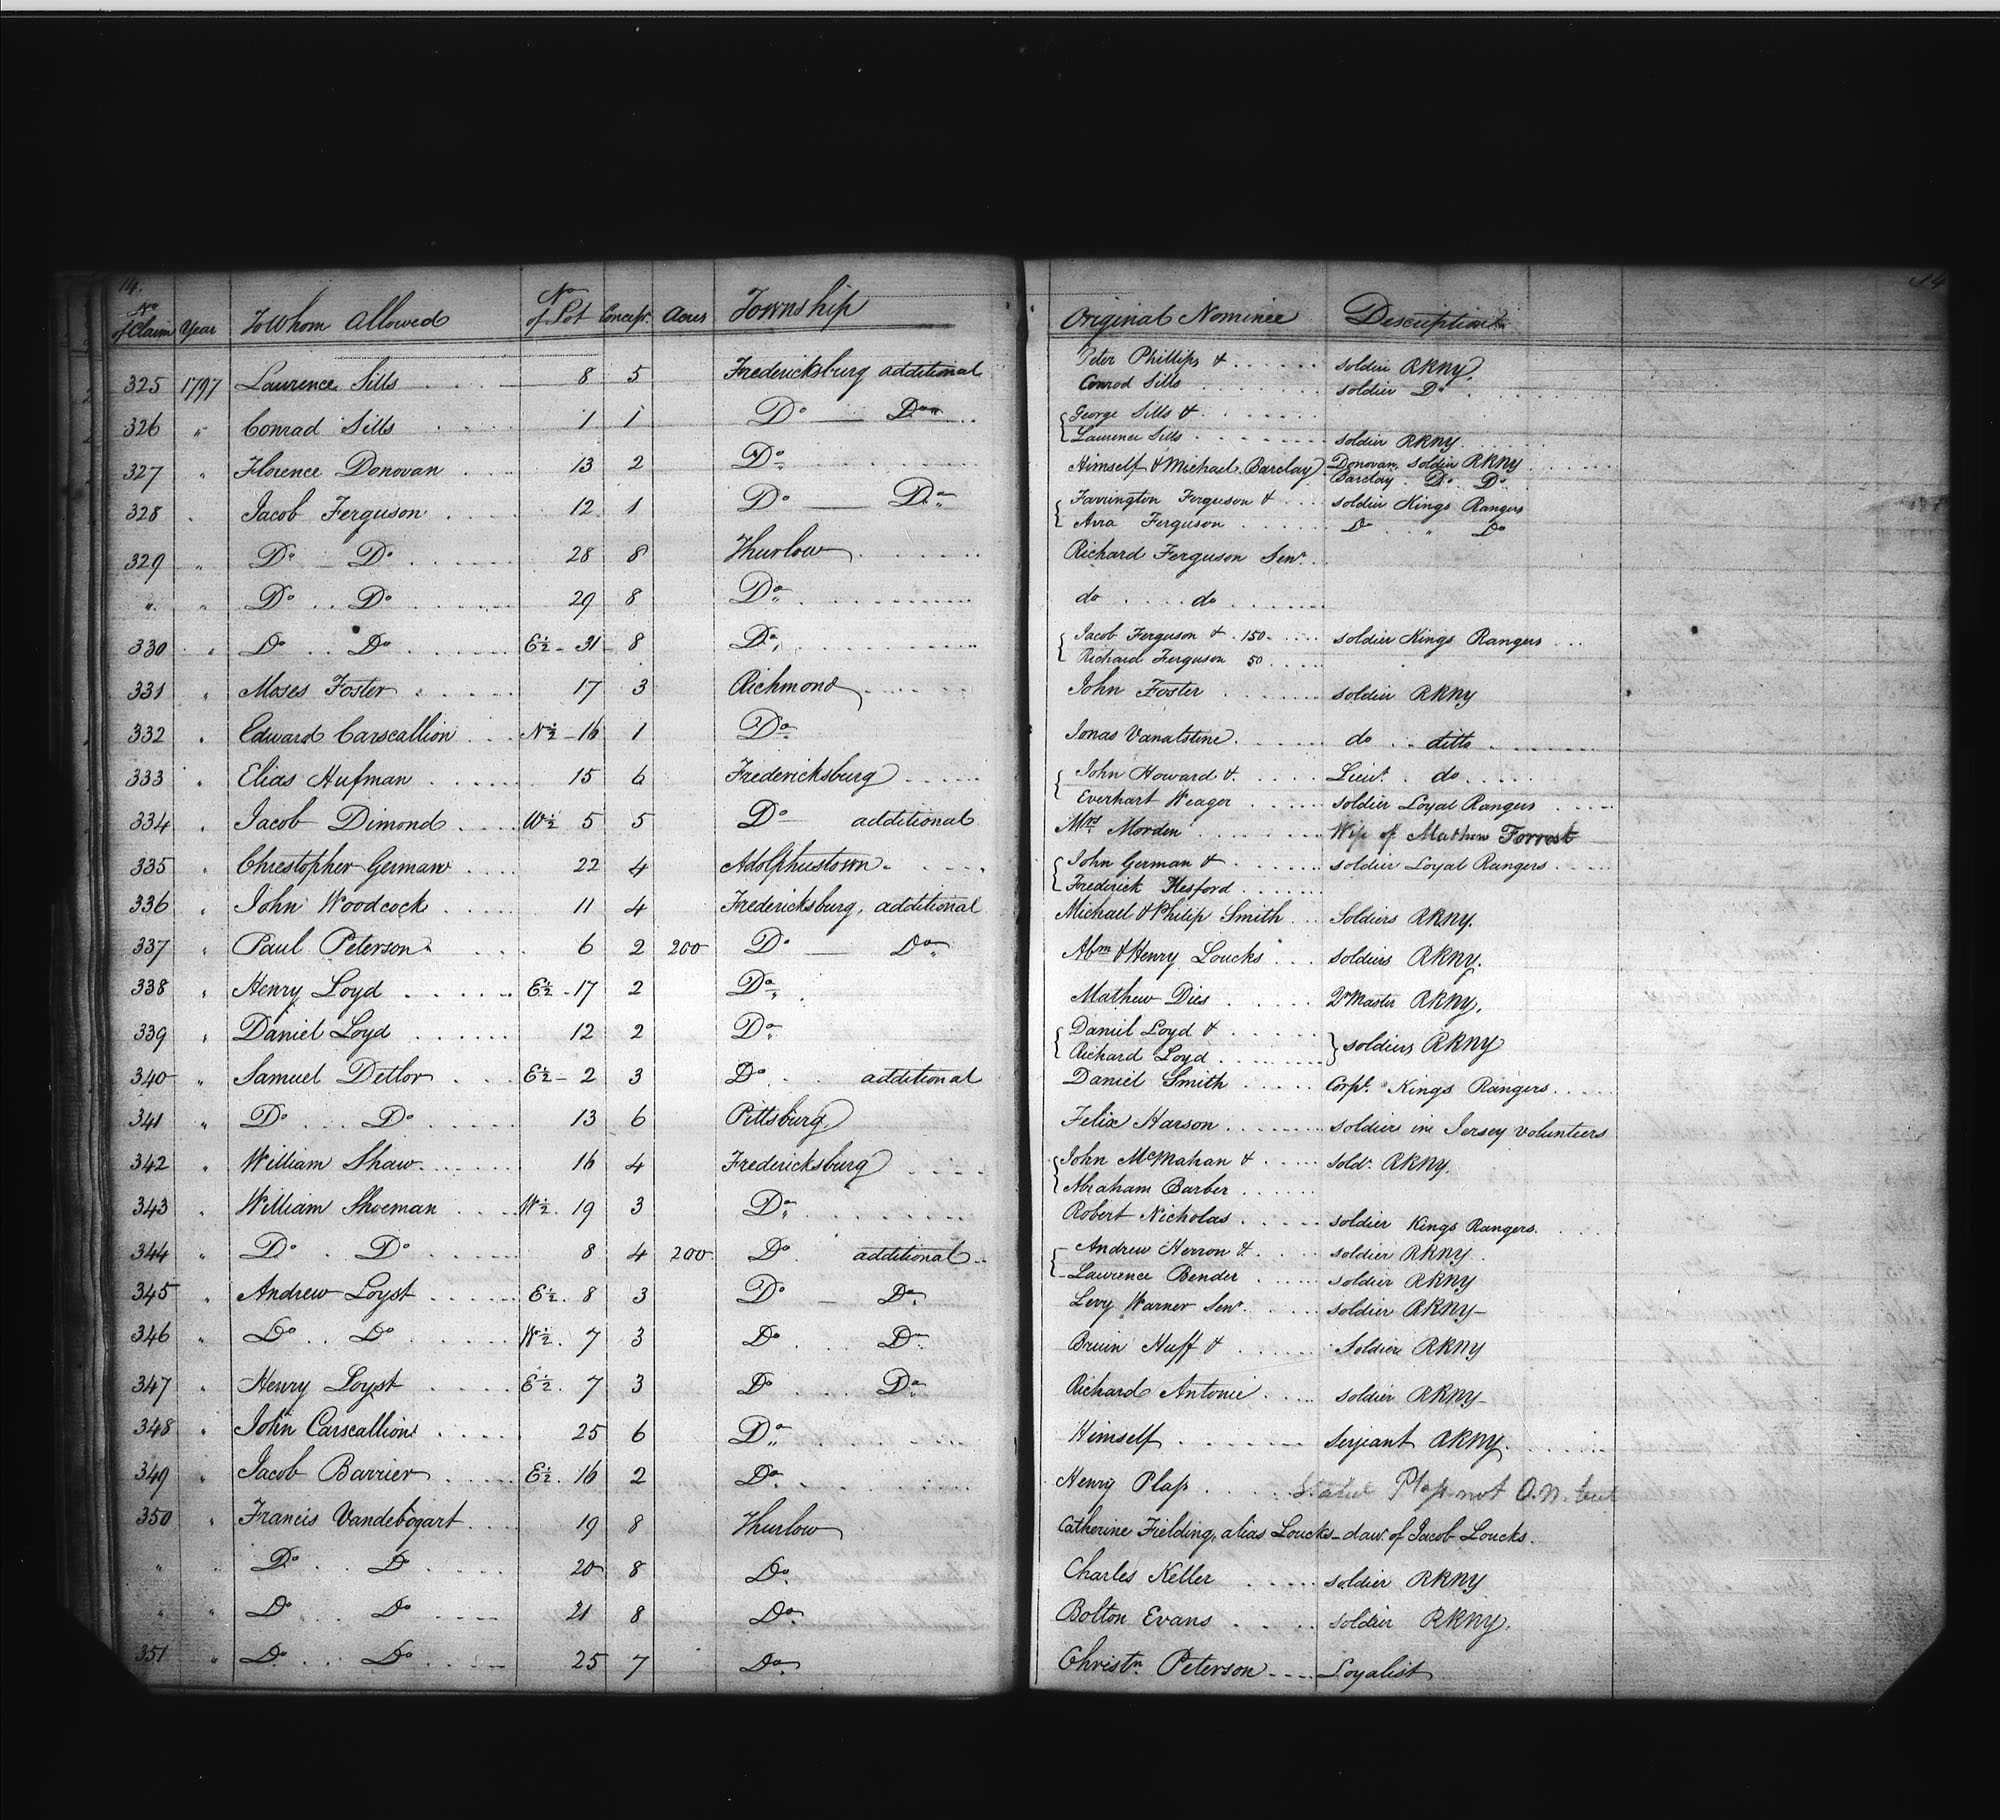 14. 14
No of Claim Year To Whom Allowed No of Lot Concess. Acres Township Original Nominee Description
325 1797 Laurence Sills 8 5 Fredericksburg additional Peter Phillips & soldier RKNY.
Conrod Sills soldier Do
326 " Conrad Sills 1 1 Do Do George Sills &
Laurence Sills soldier RKNY
327 " Florence Donovan 13 2 Do Himself & Michael Barclay Donovan, soldier RKNY
Barclay Do Do
328 " Jacob Ferguson 12 1 Do Do Farrington Ferguson & soldier Kings Rangers
Arra Ferguson Do " Do
329 " Do Do 28 8 Thurlow Richard Ferguson Senr
" " Do Do 29 8 Do do do
330 " Do Do E½ 31 8 Do Jacob Ferguson & 150 soldier Kings Rangers
Richard Ferguson 50
331 " Moses Foster 17 3 Richmond John Foster soldier RKNY
332 " Edward Carscallion N½ 16 1 Do Jonas Vanalstine do ditto
333 " Elias Hufman 15 6 Fredericksburg John Howard & Lieut. do
Everhart Weager soldier Loyal Rangers
334 " Jacob Dimond W½ 5 5 Do additional Mrs Morden Wife of Mathew Forrest
335 " Christopher German 22 4 Adolphustown John German & soldier Loyal Rangers
Frederick Hesford
336 " John Woodcock 11 4 Fredericksburg, additional Michael & Philip Smith Soldiers RKNY.
337 " Paul Peterson 6 2 200 Do Do Abm & Henry Loucks soldiers RKNY.
338 " Henry Loyd E½ 17 2 Do Mathew Dies Qr Master RKNY.
339 " Daniel Loyd 12 2 Do Daniel Loyd &
Richard Loyd soldiers RKNY
340 " Samuel Detlor E½ 2 3 Do additional Daniel Smith Corpl. Kings Rangers
341 " Do Do 13 6 Pittsburg Felix Harson soldier in Jersey volunteers
342 " William Shaw 16 4 Fredericksburg John McMahan & sold. RKNY.
Abraham Barber
343 " William Shoeman W½ 19 3 Do Robert Nicholas soldier Kings Rangers.
344 " Do Do 8 4 200 Do additional Andrew Herron & soldier RKNY
Laurence Bender soldier RKNY
345 " Andrew Loyst E½ 8 3 Do Do Levy Warner Senr. soldier RKNY
346 " Do Do W½ 7 3 Do Do Bruin Huff & Soldier RKNY
347 " Henry Loyst E½ 7 3 Do Do Richard Antonie soldier RKNY
348 " John Carscallion 25 6 Do Himself Serjeant RKNY
349 " Jacob Barrier E½ 16 2 Do Henry Plass Plass not O.N. but
350 " Francis Vandebogart 19 8 Thurlow Catherine Fielding, alias Loucks daur. of Jacob Loucks.
" " Do Do 20 8 Do Charles Keller soldier RKNY
" " Do Do 21 8 Do Bolton Evans soldier RKNY.
351 " Do Do 25 7 Do Christn Peterson Loyalist